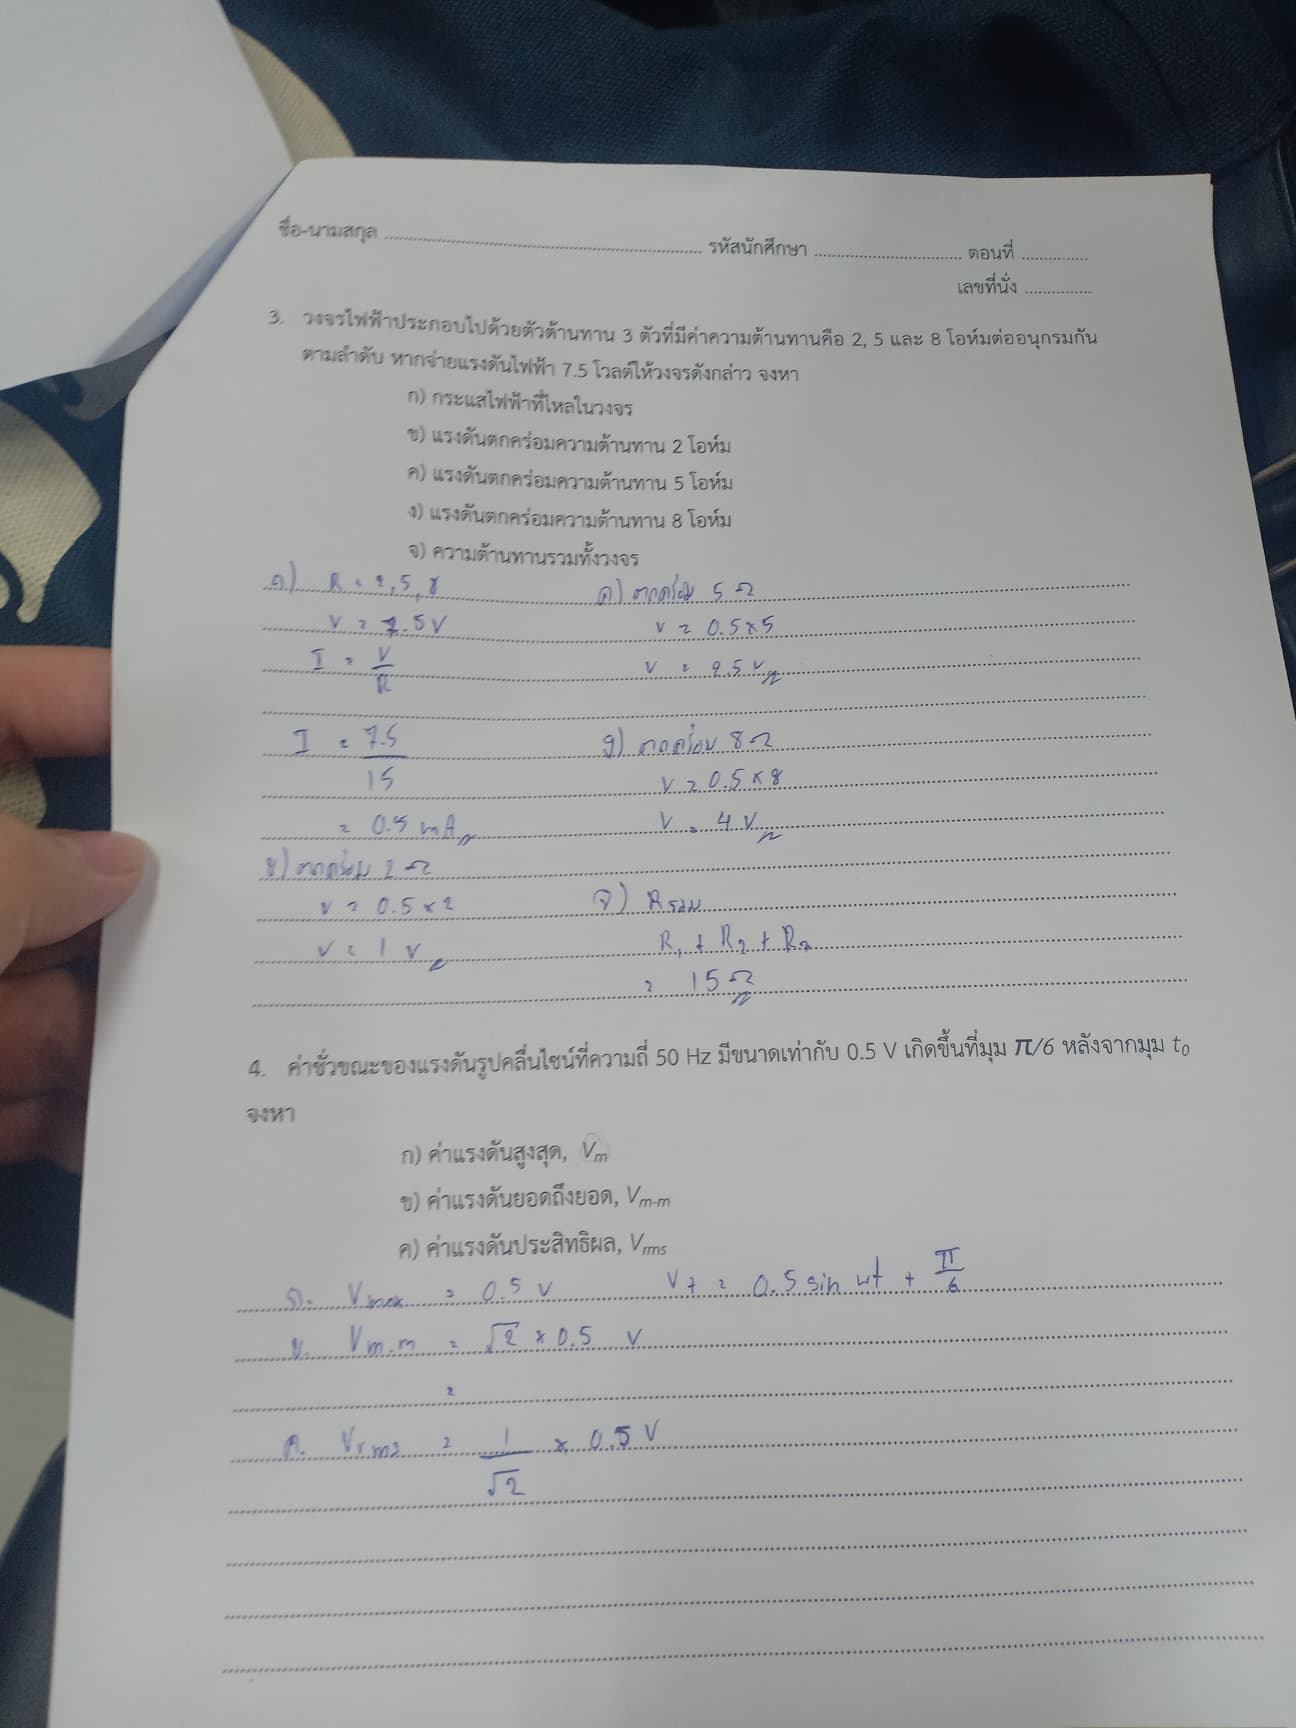 ชื่อ-นามสกุล ........................ รหัสนักศึกษา ........................ ตอนที่ ...............
เลขที่นั่ง ...............
3. วงจรไฟฟ้าประกอบไปด้วยตัวต้านทาน 3 ตัวที่มีค่าความต้านทานคือ 2, 5 และ 8 โอห์มต่ออนุกรมกัน
ตามลำดับ หากจ่ายแรงดันไฟฟ้า 7.5 โวลต์ให้วงจรดังกล่าว จงหา
ก) กระแสไฟฟ้าที่ไหลในวงจร
ข) แรงดันตกคร่อมความต้านทาน 2 โอห์ม
ค) แรงดันตกคร่อมความต้านทาน 5 โอห์ม
ง) แรงดันตกคร่อมความต้านทาน 8 โอห์ม
จ) ความต้านทานรวมทั้งวงจร
ก) R = 2, 5, 8
V = 7.5 V
I = V/R
I = 7.5/15
= 0.5 mA
ข) ตกคร่อม 2 Ω
V = 0.5 × 2
V = 1 V
ค) ตกคร่อม 5 Ω
V = 0.5 × 5
V = 2.5 V
ง) ตกคร่อม 8 Ω
V = 0.5 × 8
V = 4 V
จ) R รวม
R₁ + R₂ + R₃
= 15 Ω
4. ค่าชั่วขณะของแรงดันรูปคลื่นไซน์ที่ความถี่ 50 Hz มีขนาดเท่ากับ 0.5 V เกิดขึ้นที่มุม π/6 หลังจากมุม t₀
จงหา
ก) ค่าแรงดันสูงสุด, Vm
ข) ค่าแรงดันยอดถึงยอด, Vm-m
ค) ค่าแรงดันประสิทธิผล, Vrms
ก. Vmax = 0.5 V Vt = 0.5 sin wt + π/6
ข. Vm-m = √2 × 0.5 V
=
ค. Vrms = 1/√2 × 0.5 V